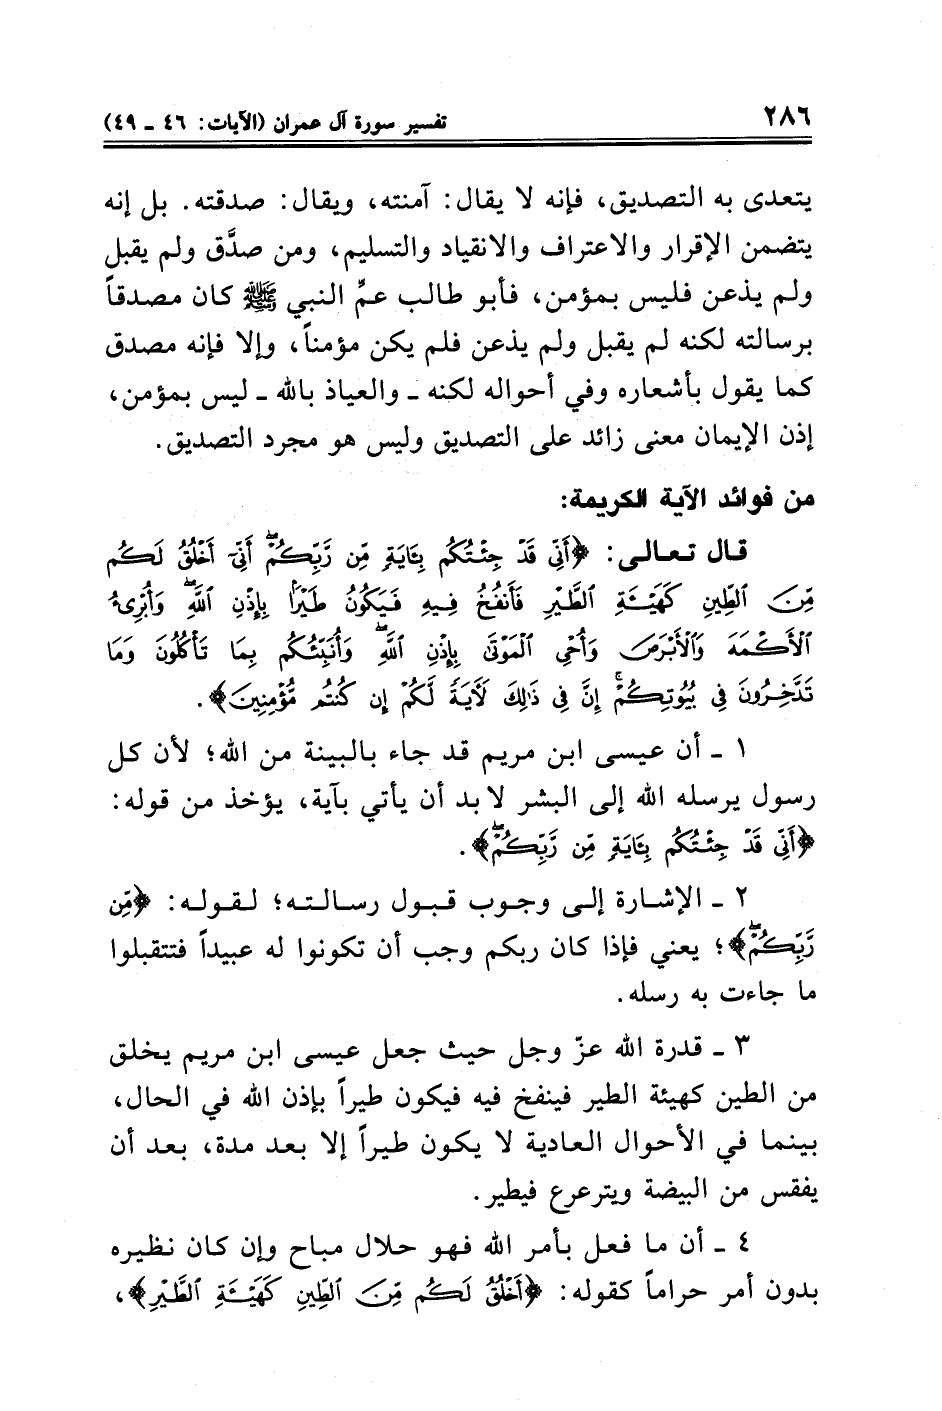 ٢٨٦
تفسير سورة آل عمران (الآيات: ٤٦ ـ ٤٩)
يتعدى به التصديق، فإنه لا يقال: آمنته، ويقال: صدقته. بل إنه
يتضمن الإقرار والاعتراف والانقياد والتسليم، ومن صدَّق ولم يقبل
ولم يذعن فليس بمؤمن، فأبو طالب عمُّ النبي ﷺ كان مصدقاً
برسالته لكنه لم يقبل ولم يذعن فلم يكن مؤمناً، وإلا فإنه مصدق
كما يقول بأشعاره وفي أحواله لكنه ـ والعياذ بالله ـ ليس بمؤمن،
إذن الإيمان معنى زائد على التصديق وليس هو مجرد التصديق.
من فوائد الآية الكريمة:
قال تعالى: ﴿أَنِّي قَدْ جِئْتُكُم بِـَٔايَةٍ مِّن رَّبِّكُمْ ۖ أَنِّيٓ أَخْلُقُ لَكُم
مِّنَ ٱلطِّينِ كَهَيْـَٔةِ ٱلطَّيْرِ فَأَنفُخُ فِيهِ فَيَكُونُ طَيْرًۢا بِإِذْنِ ٱللَّهِ ۖ وَأُبْرِئُ
ٱلْأَكْمَهَ وَٱلْأَبْرَصَ وَأُحْيِ ٱلْمَوْتَىٰ بِإِذْنِ ٱللَّهِ ۖ وَأُنَبِّئُكُم بِمَا تَأْكُلُونَ وَمَا
تَدَّخِرُونَ فِي بُيُوتِكُمْ ۚ إِنَّ فِي ذَٰلِكَ لَـَٔايَةً لَّكُمْ إِن كُنتُم مُّؤْمِنِينَ﴾.
١ ـ أن عيسى ابن مريم قد جاء بالبينة من الله؛ لأن كل
رسول يرسله الله إلى البشر لا بد أن يأتي بآية، يؤخذ من قوله:
﴿أَنِّي قَدْ جِئْتُكُم بِـَٔايَةٍ مِّن رَّبِّكُمْ ۖ﴾.
٢ ـ الإشارة إلى وجوب قبول رسالته؛ لقوله: ﴿مِّن
رَّبِّكُمْ ۖ﴾؛ يعني فإذا كان ربكم وجب أن تكونوا له عبيداً فتتقبلوا
ما جاءت به رسله.
٣ ـ قدرة الله عزّ وجل حيث جعل عيسى ابن مريم يخلق
من الطين كهيئة الطير فينفخ فيه فيكون طيراً بإذن الله في الحال،
بينما في الأحوال العادية لا يكون طيراً إلا بعد مدة، بعد أن
يفقس من البيضة ويترعرع فيطير.
٤ ـ أن ما فعل بأمر الله فهو حلال مباح وإن كان نظيره
بدون أمر حراماً كقوله: ﴿أَخْلُقُ لَكُم مِّنَ ٱلطِّينِ كَهَيْـَٔةِ ٱلطَّيْرِ﴾،